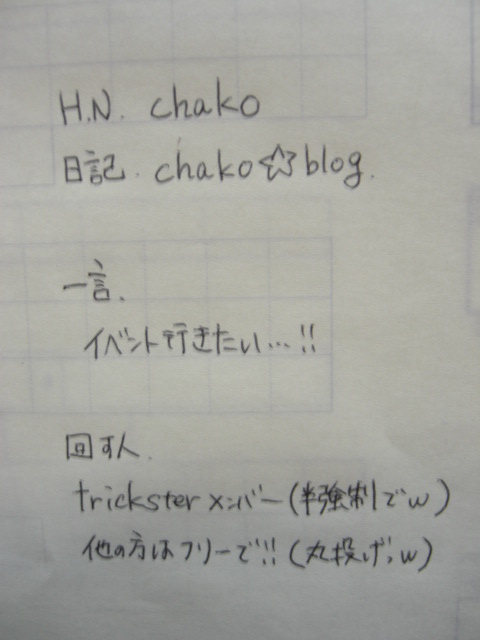 H.N. chako
日記. chako☆blog.
一言.
イベント行きたい…!!
回す人.
tricksterメンバー(半強制でw)
他の方はフリーで!!(丸投げ,w)